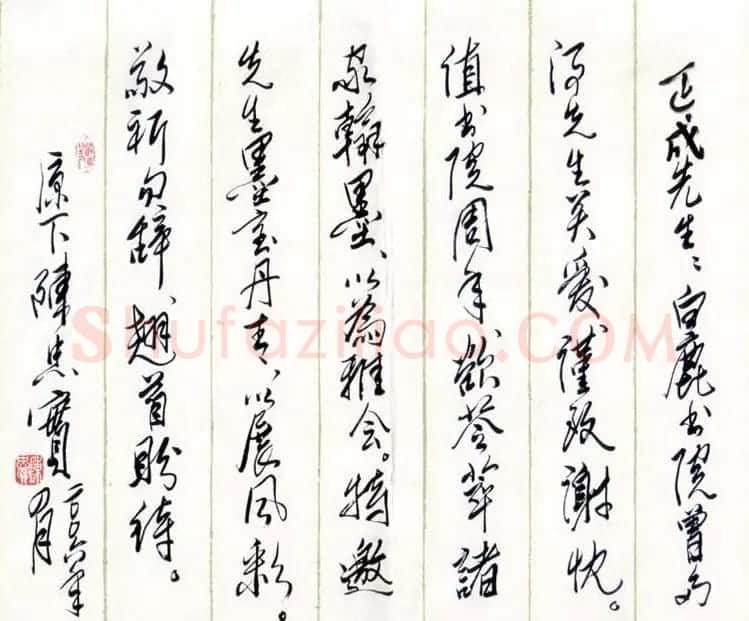 成先生：白鹿书院曾
得先生关爱谨致謝忱。
值书院周年欲荟萃諸
家翰墨、以為雅会。特邀
先生墨宝丹青、以展风彩。
敬祈勿辞、翘首盼待。
原下陳忠實
二〇〇六年
四月
Shufaziliao.COM